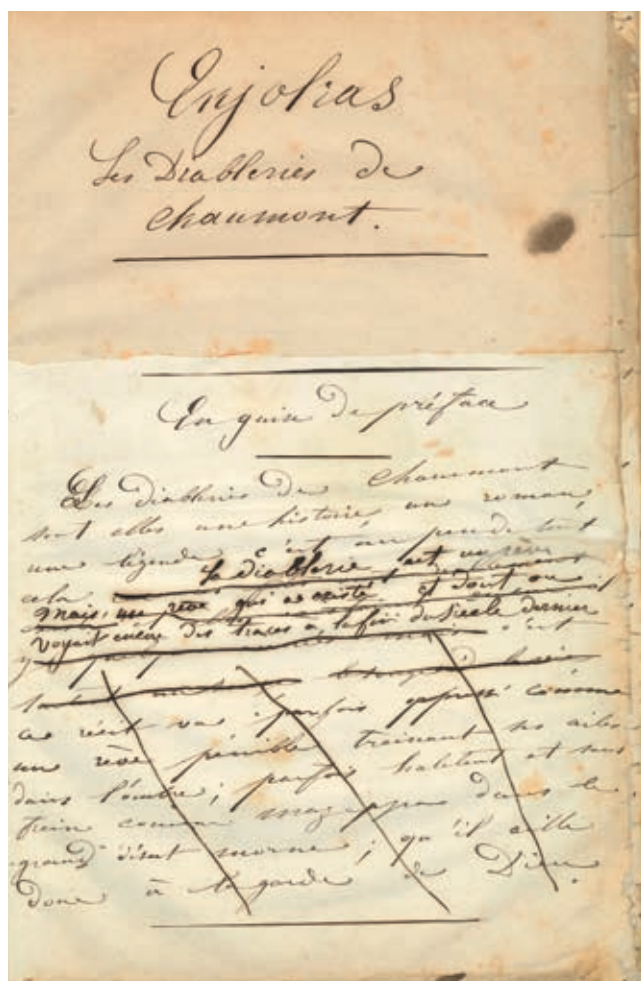 Enjolras
Les Diableries de
chaumont.
En guise de préface
Les diableries de Chaumont
sont elles une histoire, un roman,
une légende c'est un peu de tout
cela la diablerie est un rêve
mais un rêve qui a existé et dont on
voyait encore des traces à la fin du siecle dernier
c'est
ce récit va parfois oppressé comme
un rêve pénible trainant ses ailes
dans l'ombre; parfois haletent et sans
frein comme mazeppa dans le
grand désert morne; qu'il aille
donc à la garde de Dieu.